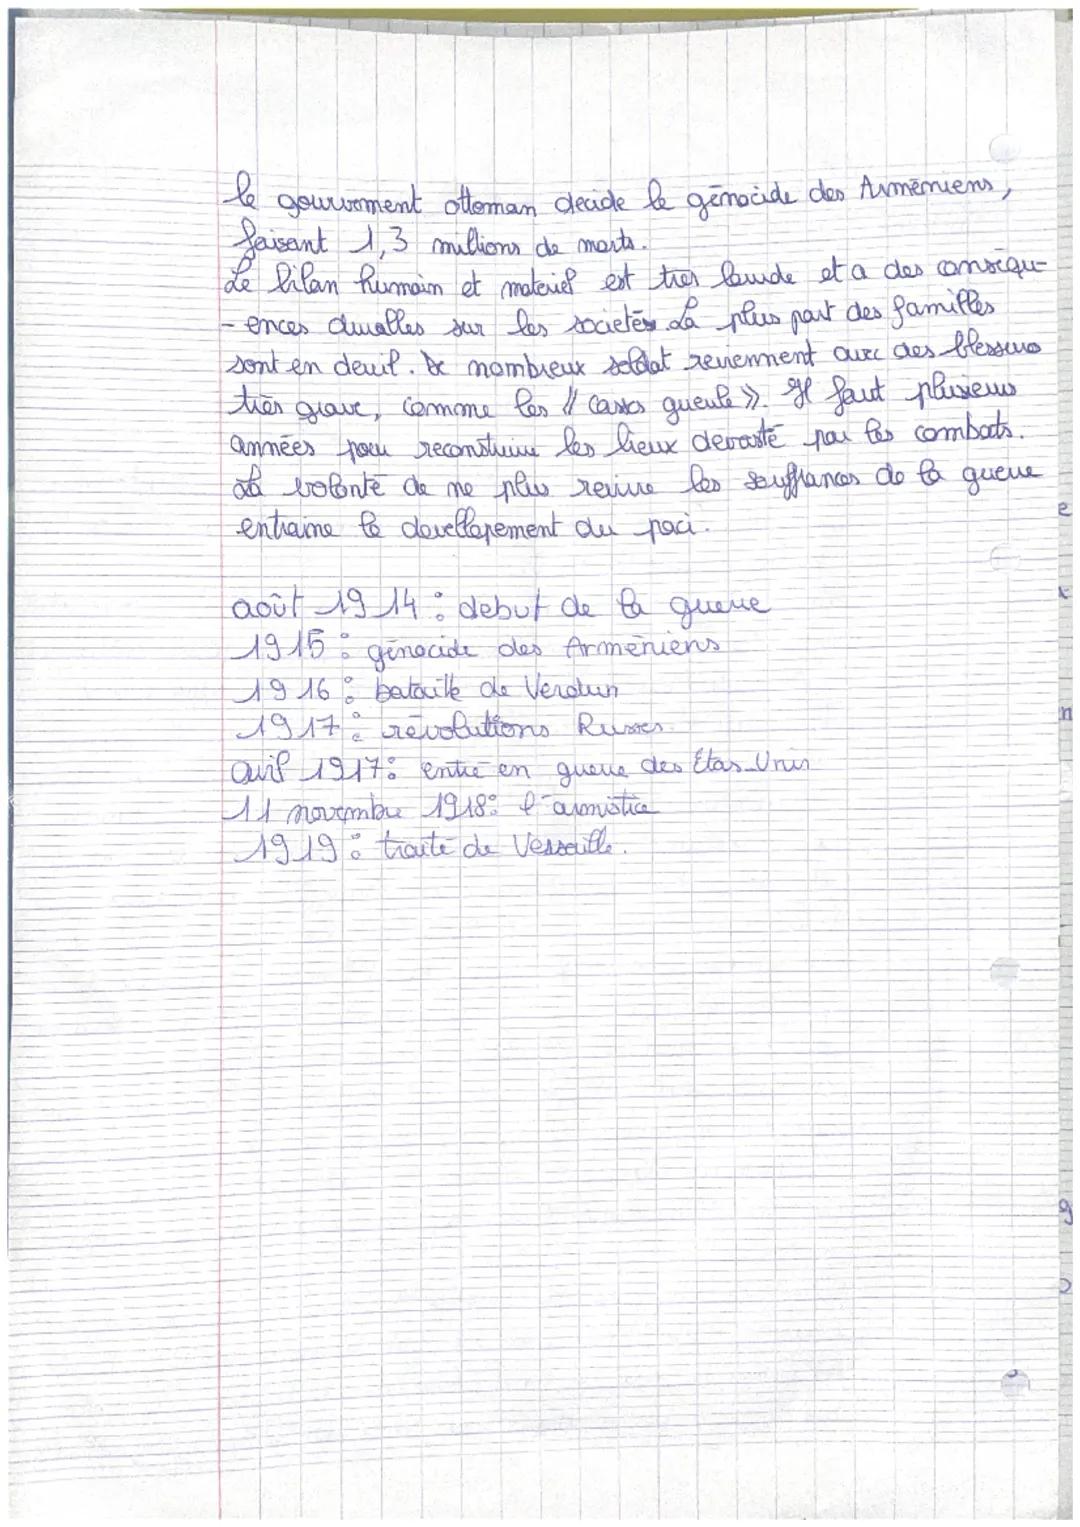 le gouvurment ottoman decide le génocide des Arméniens,
faisant 1,3 millions de morts.
Le bilan humain et materiel est tres lourde et a des conséqu-
-ences durables sur les societés. La plus part des familles
sont en deuil. De nombreux soldat reviennent avec des blessures
très grave, comme les « casses gueule ». Il faut plusieurs
années pour reconstruire les lieux devasté par les combats.
La volonté de ne plus revivre les souffrances de la guerre
entraine le devellopement du paci.
août 1914 : debut de la guerre
1915 : génocide des Arméniens
1916 : bataille de Verdun
1917 : révolutions Russes
avril 1917 : entré en guerre des Etas-Unis
11 novembre 1918 : l'armistice
1919 : traité de Versaille.